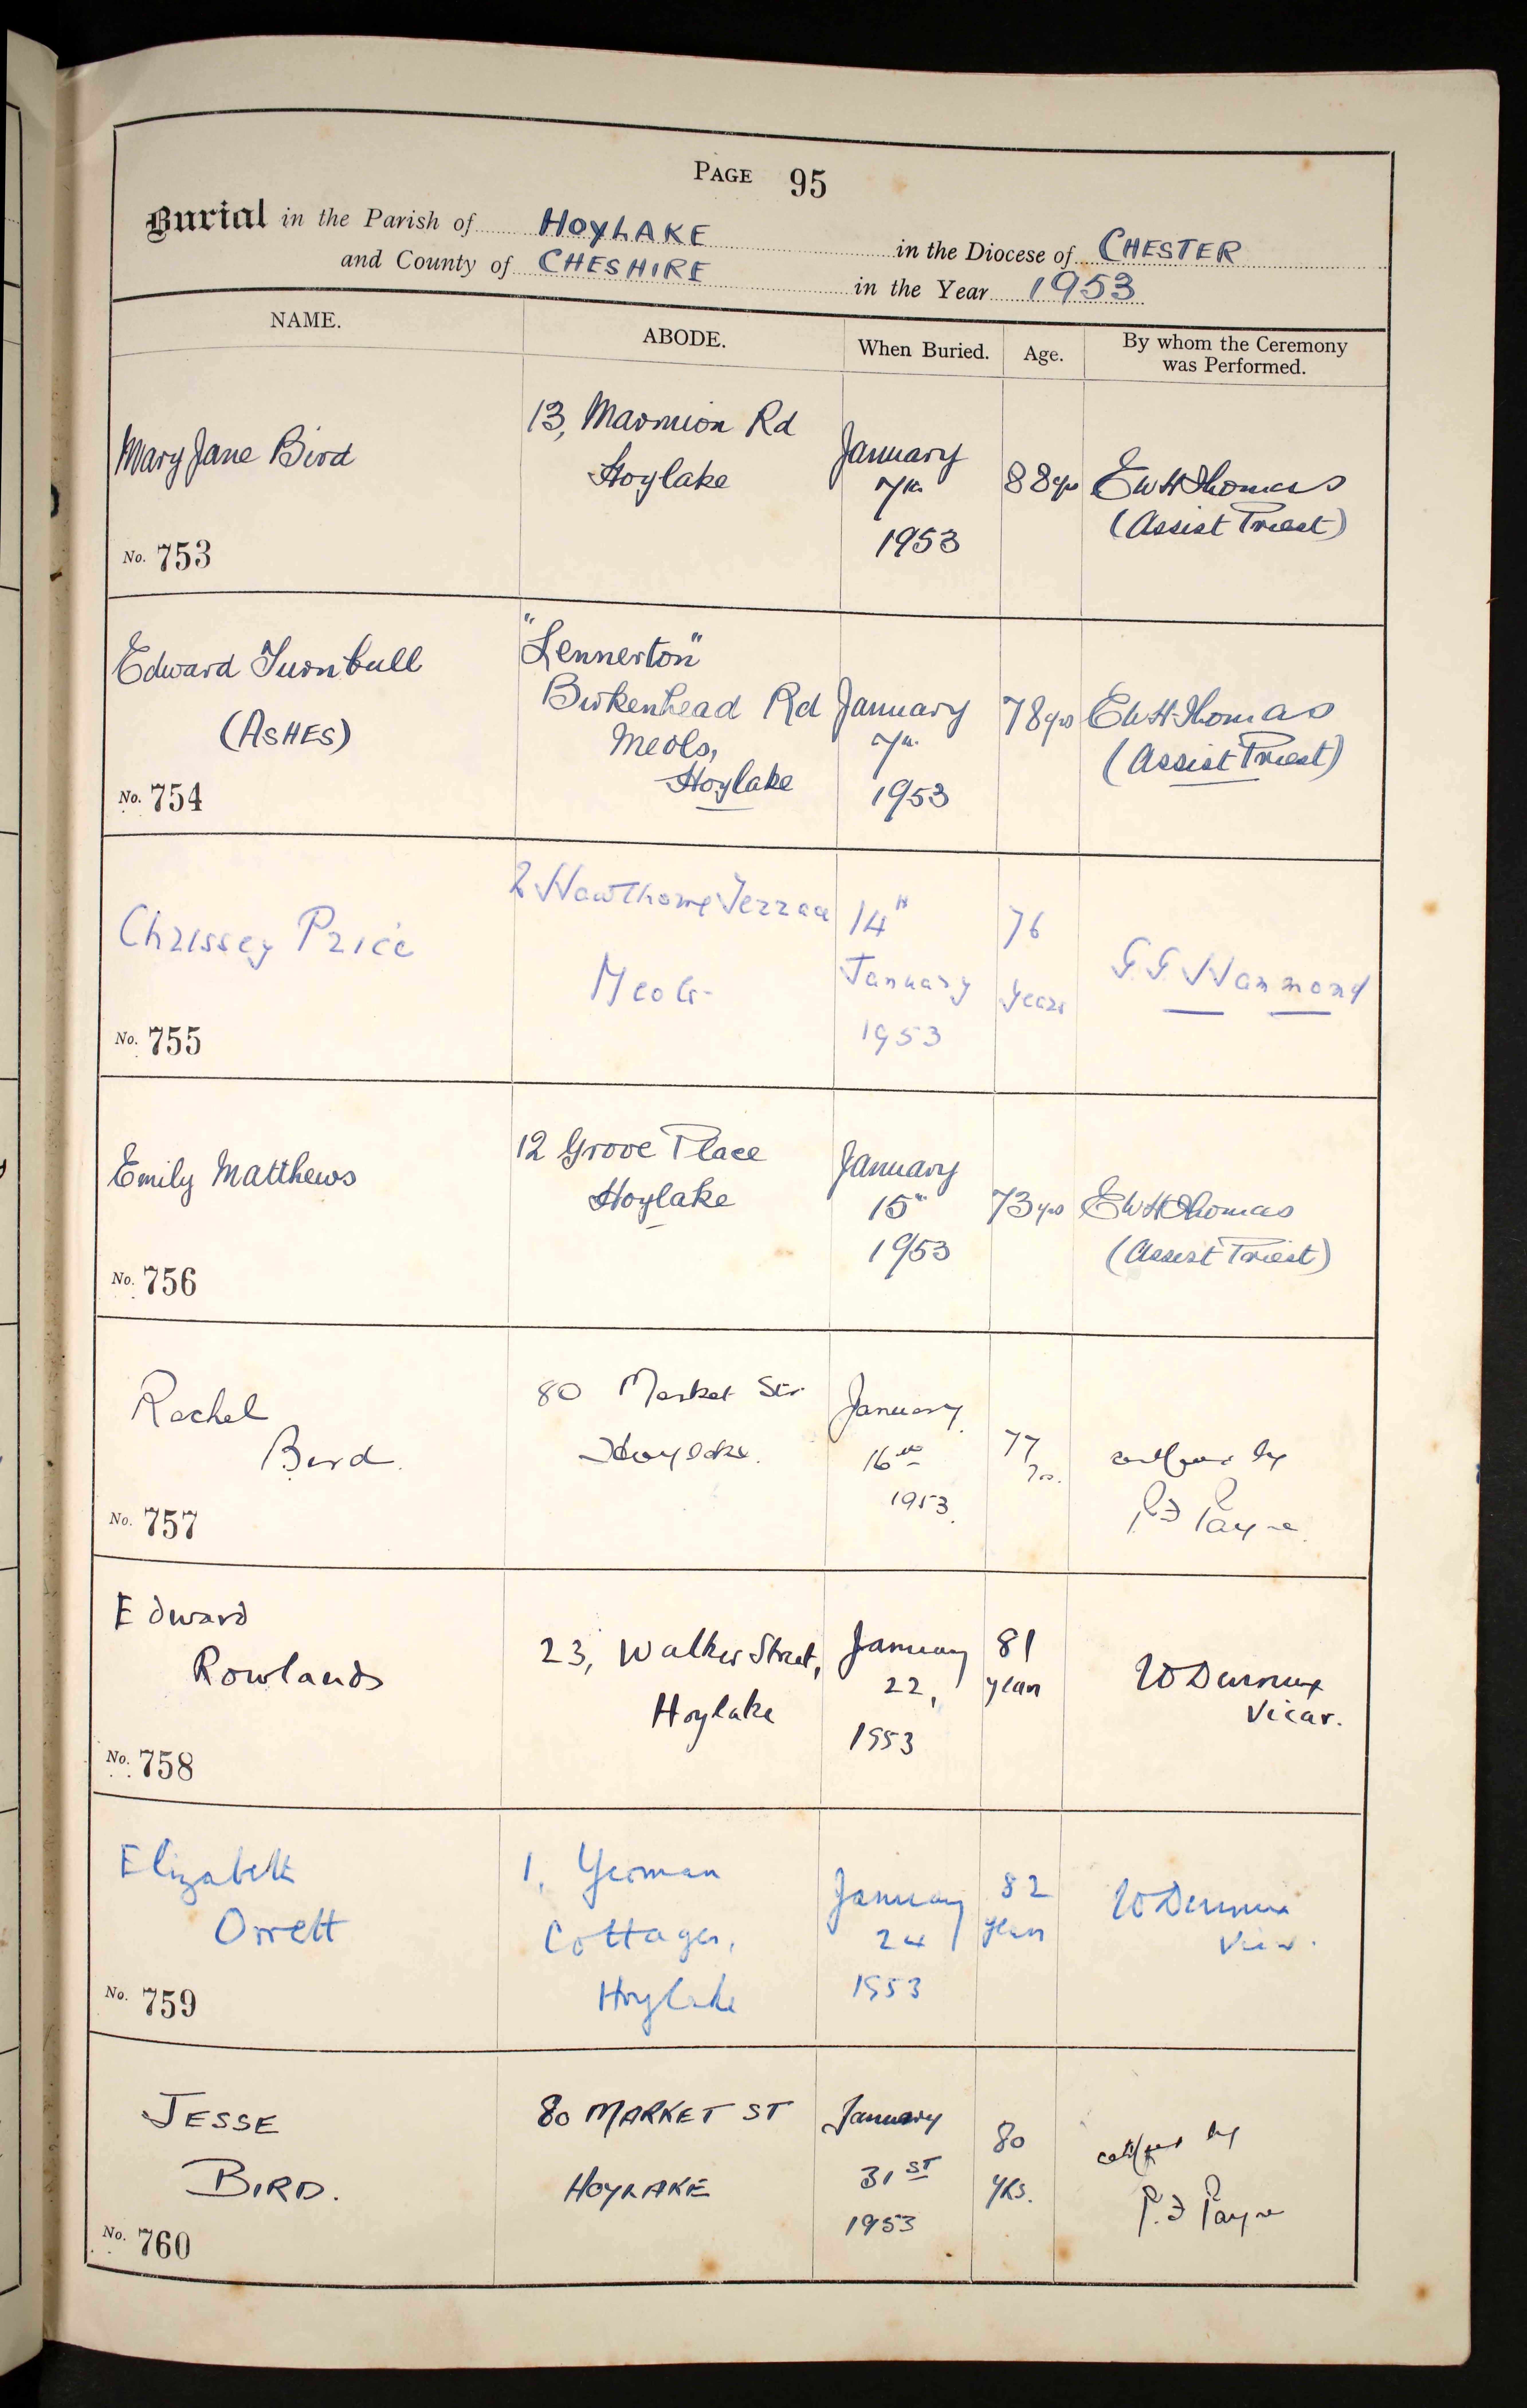 PAGE 95
Burial in the Parish of HOYLAKE in the Diocese of CHESTER
and County of CHESHIRE in the Year 1953
NAME. ABODE. When Buried. Age. By whom the Ceremony was Performed.
Mary Jane Bird
No. 753
13, Marmion Rd
Hoylake
January
7th
1953
88 yrs
E W H Thomas
(Assist Priest)
Edward Turnbull
(ASHES)
No. 754
"Lennerton"
Birkenhead Rd
Meols,
Hoylake
January
7th
1953
78 yrs
E W H Thomas
(Assist Priest)
Chrissey Price
No. 755
2 Hawthorne Terrace
Meols
14th
January
1953
76
years
G. G. Hammond
Emily Matthews
No. 756
12 Grove Place
Hoylake
January
15th
1953
73 yrs
E W H Thomas
(Assist Priest)
Rachel
Bird.
No. 757
80 Market Str
Hoylake.
January.
16th
1953.
77
Yrs.
by
Payne.
Edward
Rowlands
No. 758
23, Walker Street,
Hoylake
January
22,
1953
81
years
Vicar.
Elizabeth
Orrett
No. 759
1, Yeoman
Cottages,
Hoylake
January
24
1953
82
years
Vicar.
JESSE
BIRD.
No. 760
80 MARKET ST
HOYLAKE
January
31ST
1953
80
YRS.
by
Payne